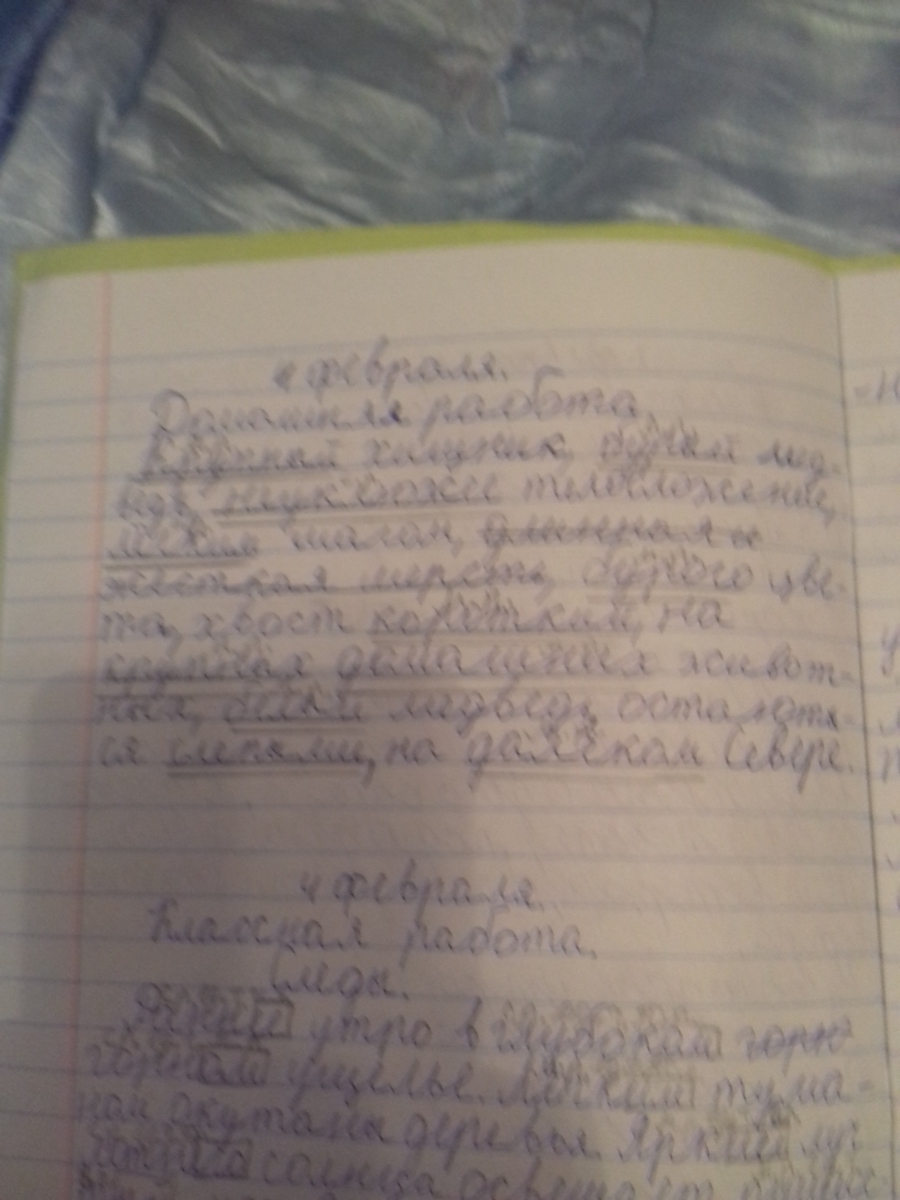 4 февраля.
Домашняя работа.
Крупный хищник, бурый мед-
ведь, неуклюжее телосложение,
лёгким шагом, длинная и
жёсткая шерсть, бурого цве-
та, хвост короткий, на
крупных домашних живот-
ных, белый медведь, остаются-
ся слепыми, на далёком Севере.
4 февраля.
Классная работа.
Следы.
утро в глубоком горно
горном ущелье. Лёгким тума-
ном окутаны деревья. Яркий луч
солнца освещает